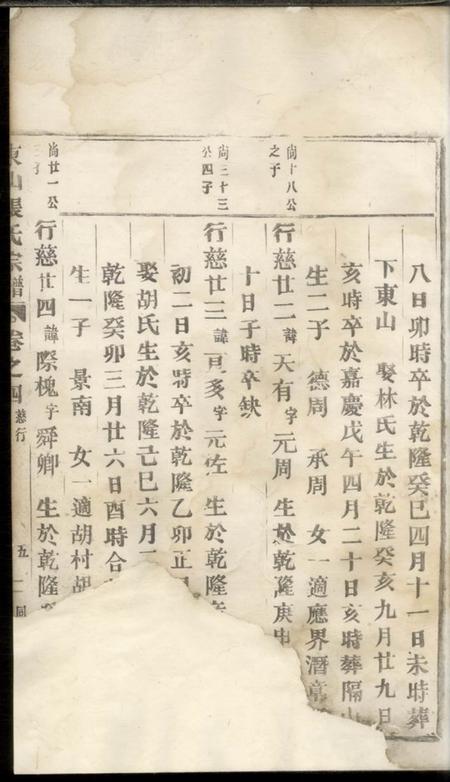 八日卯時卒於乾隆癸巳四月十一日未時葬
下東山 娶林氏生於乾隆癸亥九月廿九日
亥時卒於嘉慶戊午四月二十日亥時葬隔山
生二子 德周 承周 女一適應界潛
尚十八公之子
行慈廿二 諱天有字元周 生於乾隆庚申
十日子時卒缺
尚三十三公四子
行慈廿三 諱 多字元佐 生於乾隆
初二日亥時卒於乾隆乙卯正
娶胡氏生於乾隆己巳六月
乾隆癸卯三月廿六日酉時合
生一子 景南 女一適胡村胡
尚廿一公 子
行慈廿四 諱際槐字舜卿 生於乾隆
東山張氏宗譜 卷之四 慈行 五